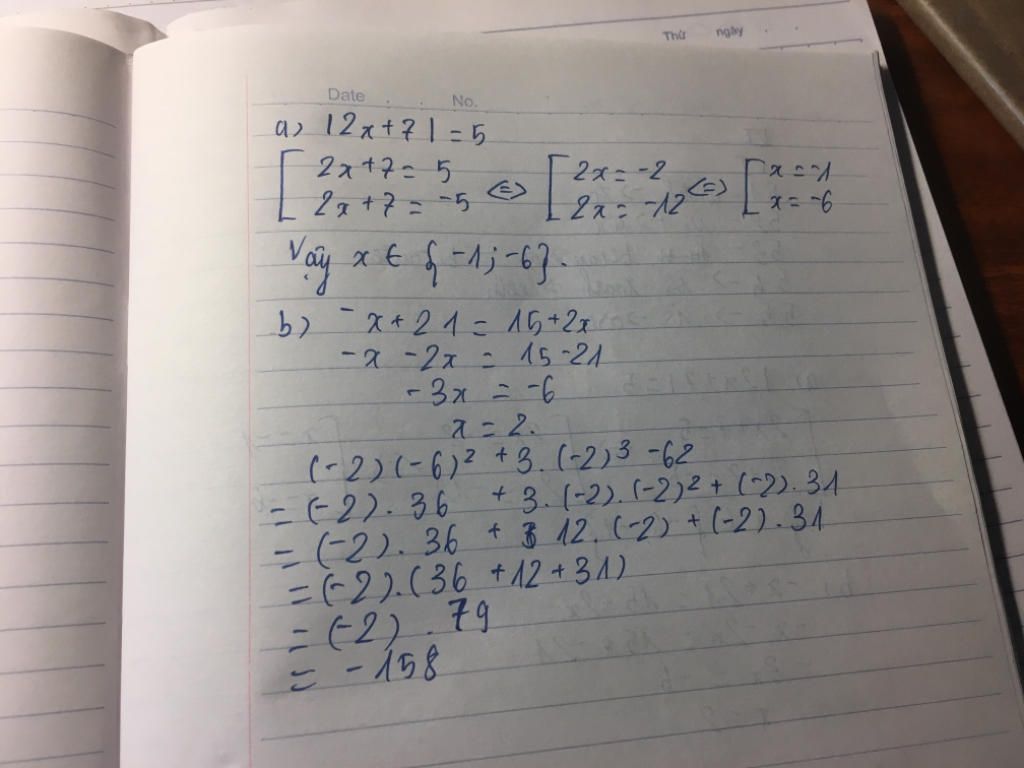 Thứ ngày
Date No.
a) |2x+7| = 5
[ 2x+7 = 5 <=> [ 2x = -2 <=> [ x = -1
2x+7 = -5 2x = -12 x = -6
Vậy x ∈ {-1; -6}.
b) -x+21 = 15+2x
-x -2x = 15-21
-3x = -6
x = 2.
(-2)(-6)² +3.(-2)³ -62
= (-2).36 +3.(-2).(-2)² + (-2).31
= (-2).36 + 12.(-2) + (-2).31
= (-2).(36 +12+31)
= (-2).79
= -158